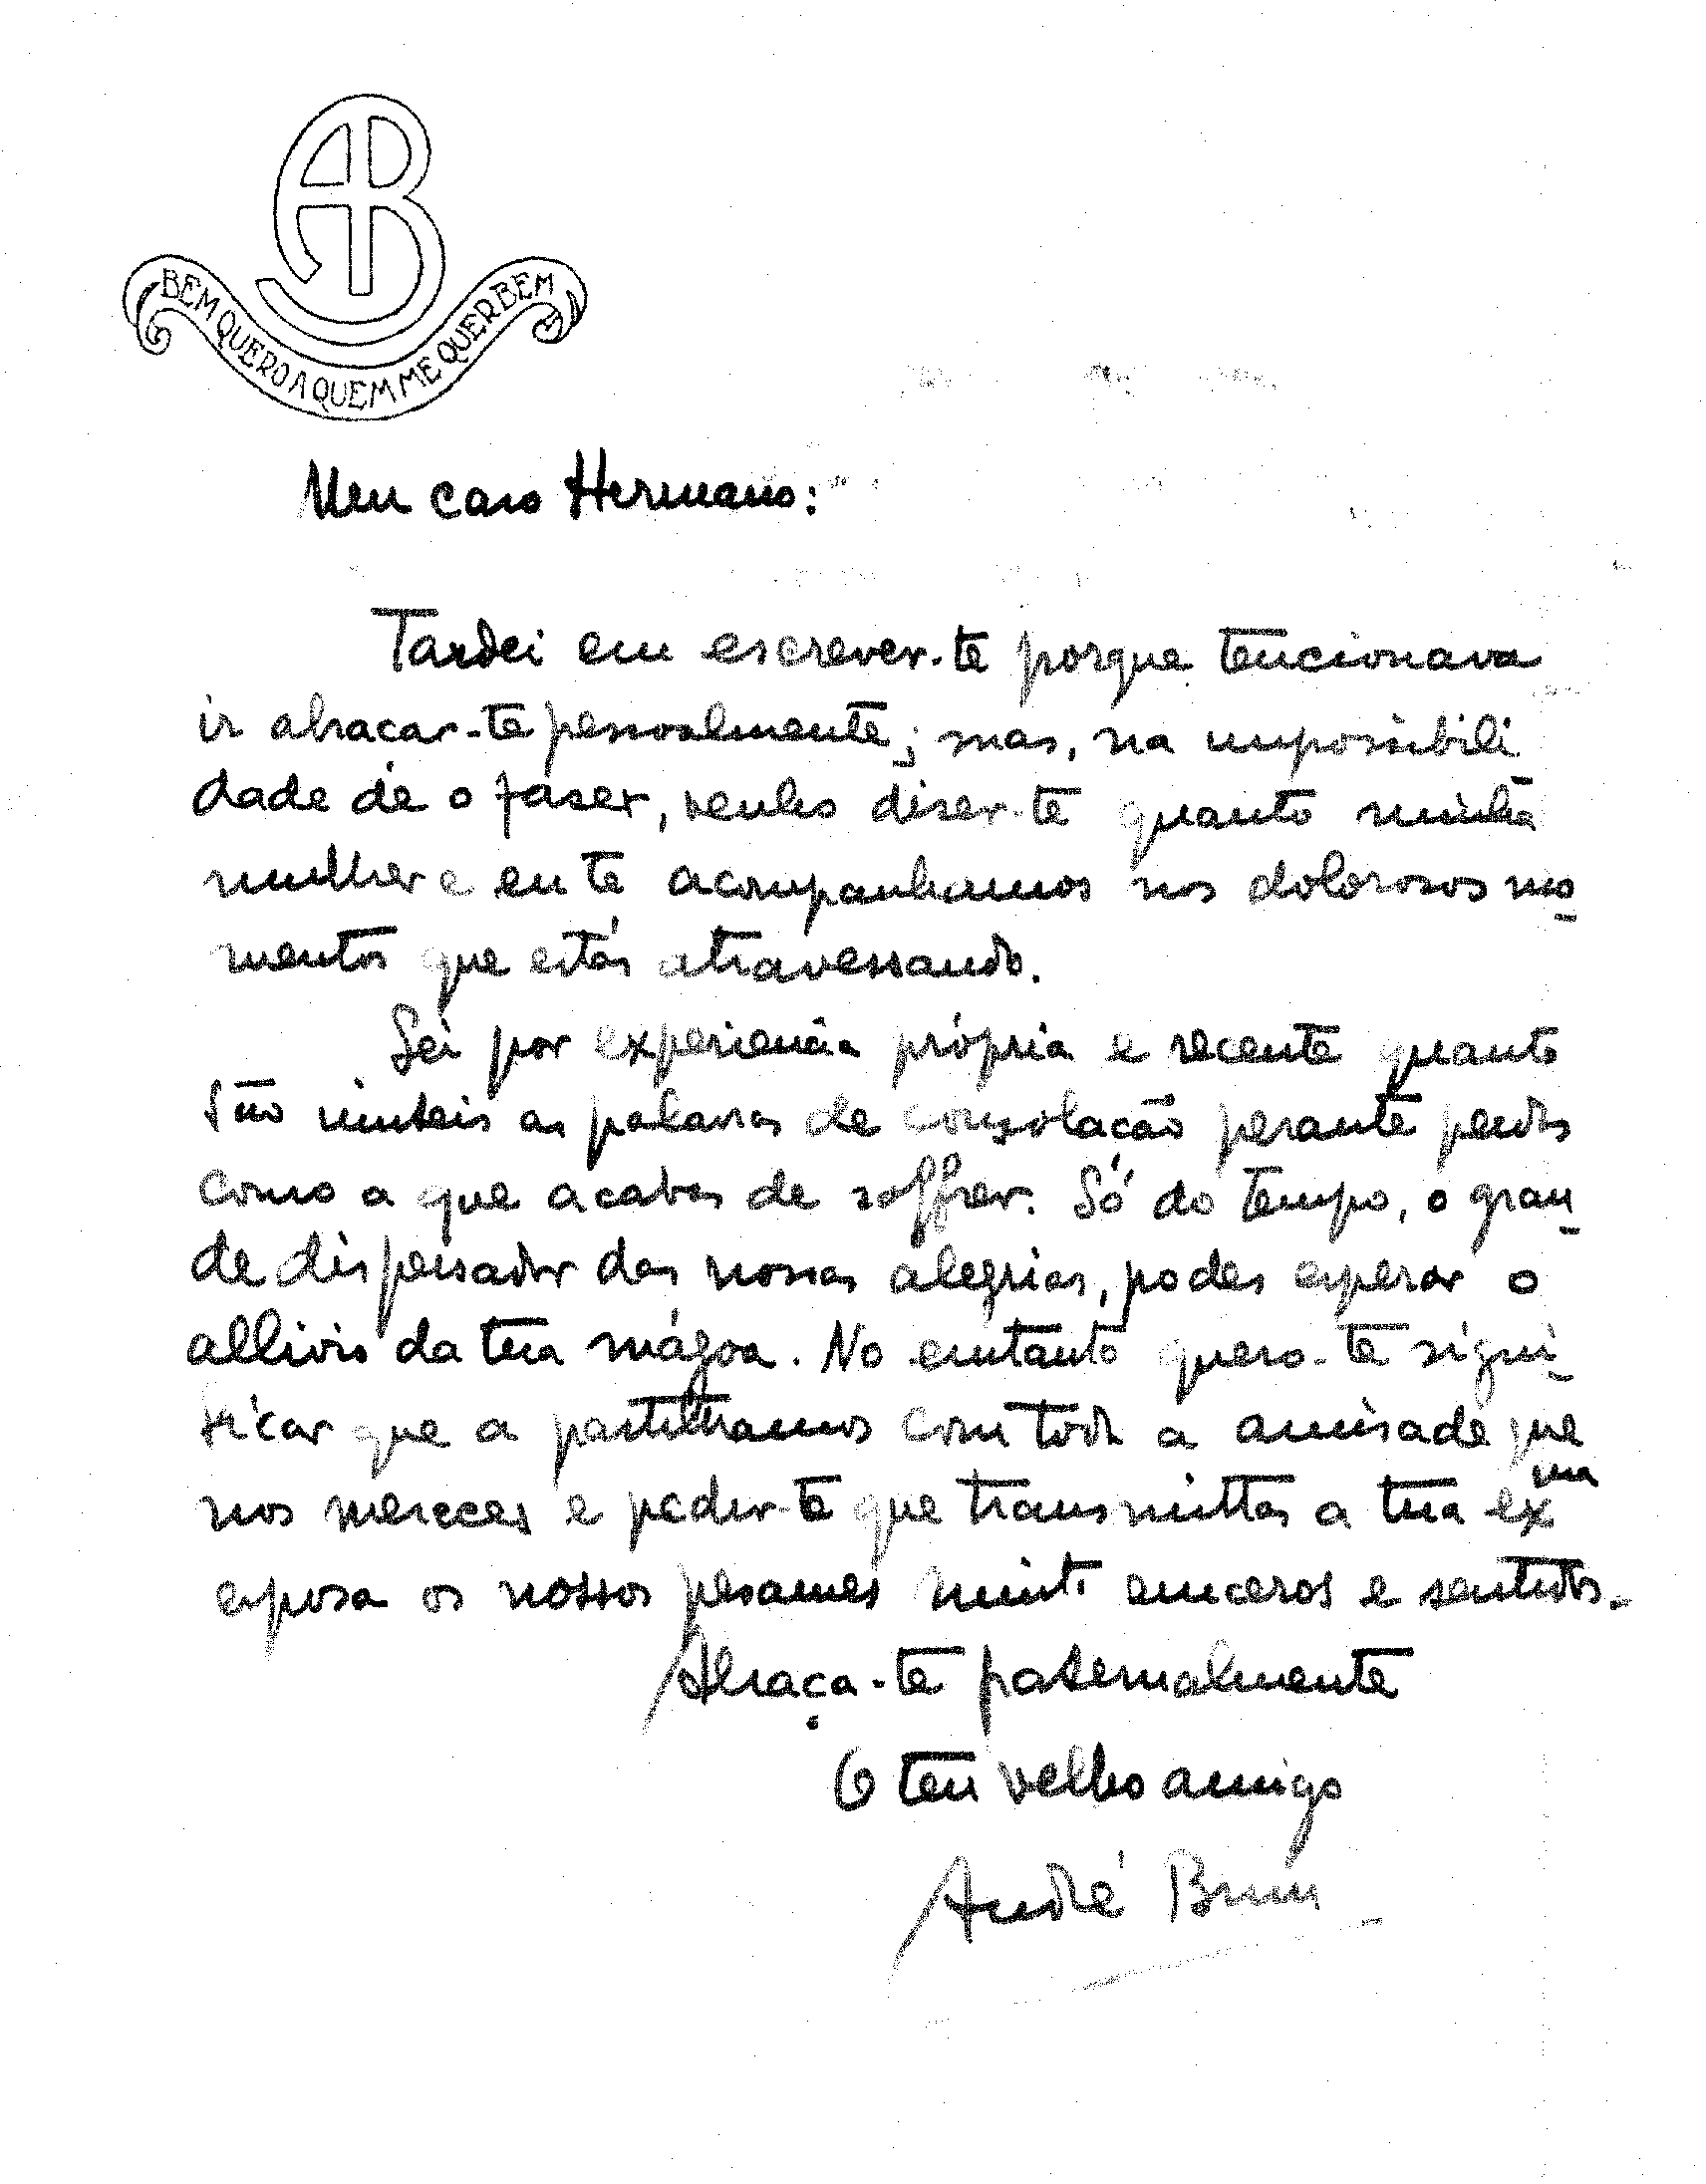 AB
BEM QUERO A QUEM ME QUER BEM
Meu caro Hermano:
Tardei em escrever-te porque tencionava
ir abraçar-te pessoalmente; mas, na impossibili
dade de o faser, venho diser-te quanto minha
mulher e eu te acompanhamos nos dolorosos mo-
mentos que estás atravessando.
Sei por experiencia própria e recente quanto
são inuteis as palavras de consolação perante perdas
como a que acabas de soffrer. Só do tempo, o gran-
de dispersador das nossas alegrias, podes esperar o
allivio da tua mágoa. No entanto quero-te signi-
ficar que a partilhamos com toda a amisade que
nos mereces e pedir-te que transmittas a tua exma
esposa os nossos pesames muito sinceros e sentidos.
Abraça-te paternalmente
O teu velho amigo
André Brun